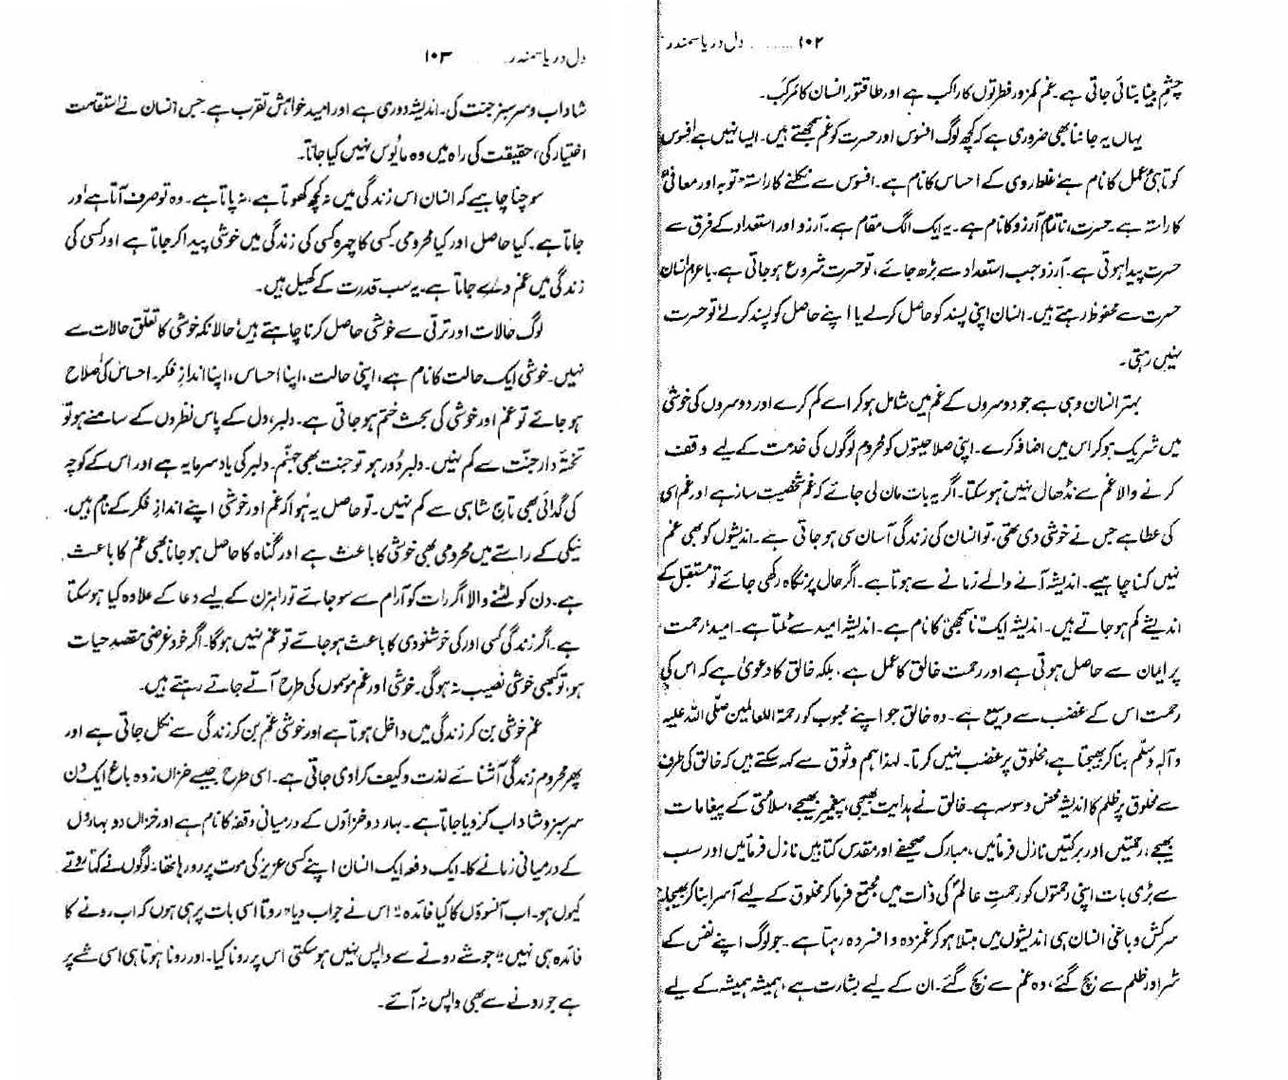 ۱۰۲ ......... دل دریا سمندر
چشمِ بینا بنائی جاتی ہے۔ غم کمزور فطرتوں کا راکب ہے اور طاقتور انسان کا مرکب۔
یہاں یہ جاننا بھی ضروری ہے کہ کچھ لوگ افسوس اور حسرت کو غم سمجھتے ہیں۔ ایسا نہیں ہے افسوس
کوتاہیٔ عمل کا نام ہے غلط روی کے احساس کا نام ہے۔ افسوس سے نکلنے کا راستہ "توبہ اور معافی"
کا راستہ ہے۔ حسرت، ناتمام آرزو کا نام ہے۔ یہ ایک الگ مقام ہے۔ آرزو اور استعداد کے فرق سے
حسرت پیدا ہوتی ہے۔ آرزو جب استعداد سے بڑھ جائے، تو حسرت شروع ہو جاتی ہے۔ باعزم انسان
حسرت سے محفوظ رہتے ہیں۔ انسان اپنی پسند کو حاصل کر لے یا اپنے حاصل کو پسند کر لے تو حسرت
نہیں رہتی۔
بہتر انسان وہی ہے جو دوسروں کے غم میں شامل ہو کر اسے کم کرے اور دوسروں کی خوشی
میں شریک ہو کر اس میں اضافہ کرے۔ اپنی صلاحیتوں کو محروم لوگوں کی خدمت کے لیے وقف
کرنے والا غم سے نڈھال نہیں ہو سکتا۔ اگر یہ بات مان لی جائے کہ غم شخصیت ساز ہے اور غم اسی
کی عطا ہے جس نے خوشی دی تھی، تو انسان کی زندگی آسان سی ہو جاتی ہے۔ اندیشوں کو بھی غم
نہیں کہنا چاہیے۔ اندیشہ آنے والے زمانے سے ہوتا ہے۔ اگر حال پر نگاہ رکھی جائے تو مستقبل کے
اندیشے کم ہو جاتے ہیں۔ اندیشہ ایک ناسمجھی کا نام ہے۔ اندیشہ امید سے ٹلتا ہے۔ امید، رحمت
پر ایمان سے حاصل ہوتی ہے اور رحمت خالق کا عمل ہے، بلکہ خالق کا دعویٰ ہے کہ اس کی
رحمت اس کے غضب سے وسیع ہے۔ وہ خالق جو اپنے محبوب کو رحمۃ اللعالمین صلی اللہ علیہ
و آلہٖ وسلم بنا کر بھیجتا ہے، مخلوق پر غضب نہیں کرتا۔ لہٰذا ہم وثوق سے کہہ سکتے ہیں کہ خالق کی طرف
سے مخلوق پر ظلم کا اندیشہ محض وسوسہ ہے۔ خالق نے ہدایت بھیجی، پیغمبر بھیجے، سلامتی کے پیغامات
بھیجے، رحمتیں اور برکتیں نازل فرمائیں، مبارک صحیفے اور مقدس کتابیں نازل فرمائیں اور سب
سے بڑی بات اپنی رحمتوں کو رحمتِ عالمؐ کی ذات میں مجتمع فرما کر مخلوق کے لیے آسرا بنا کر بھیجا۔
سرکش و باغی انسان ہی اندیشوں میں مبتلا ہو کر غمزدہ و افسردہ رہتا ہے۔ جو لوگ اپنے نفس کے
شر اور ظلم سے بچ گئے، وہ غم سے بچ گئے۔ ان کے لیے بشارت ہے، ہمیشہ ہمیشہ کے لیے
دل دریا سمندر ۱۰۳
شاداب و سرسبز جنت کی۔ اندیشہ دوری ہے اور امید خواہشِ تقرب ہے۔ جس انسان نے استقامت
اختیار کی، حقیقت کی راہ میں وہ مایوس نہیں کیا جاتا۔
سوچنا چاہیے کہ انسان اس زندگی میں نہ کچھ کھوتا ہے، نہ پاتا ہے۔ وہ تو صرف آتا ہے اور
جاتا ہے۔ کیا حاصل اور کیا محرومی۔ کسی کا چہرہ کسی کی زندگی میں خوشی پیدا کر جاتا ہے اور کسی کی
زندگی میں غم دے جاتا ہے۔ یہ سب قدرت کے کھیل ہیں۔
لوگ حالات اور ترقی سے خوشی حاصل کرنا چاہتے ہیں حالانکہ خوشی کا تعلق حالات سے
نہیں۔ خوشی ایک حالت کا نام ہے، اپنی حالت، اپنا احساس، اپنا اندازِ فکر۔ احساس کی اصلاح
ہو جائے تو غم اور خوشی کی بحث ختم ہو جاتی ہے۔ دلبر، دل کے پاس نظروں کے سامنے ہو تو
تختۂ دار جنت سے کم نہیں۔ دلبر دُور ہو تو جنت بھی جہنم۔ دلبر کی یاد سرمایہ ہے اور اس کے کوچہ
کی گدائی بھی تاجِ شاہی سے کم نہیں۔ تو حاصل یہ ہُوا کہ غم اور خوشی اپنے اندازِ فکر کے نام ہیں۔
نیکی کے راستے میں محرومی بھی خوشی کا باعث ہے اور گناہ کا حاصل ہو جانا بھی غم کا باعث
ہے۔ دن کو لٹنے والا اگر رات کو آرام سے سو جائے تو راہزن کے لیے دعا کے علاوہ کیا ہو سکتا
ہے۔ اگر زندگی کسی اور کی خوشنودی کا باعث ہو جائے تو غم نہیں ہو گا۔ اگر خود غرضی مقصدِ حیات
ہو، تو کبھی خوشی نصیب نہ ہو گی۔ خوشی اور غم موسموں کی طرح آتے جاتے رہتے ہیں۔
غم خوشی بن کر زندگی میں داخل ہوتا ہے اور خوشی غم بن کر زندگی سے نکل جاتی ہے اور
پھر محروم زندگی آشنائے لذت و کیف کرا دی جاتی ہے۔ اسی طرح جیسے خزاں زدہ باغ ایک دن
سرسبز و شاداب کر دیا جاتا ہے۔ بہار دو خزاؤں کے درمیانی وقفہ کا نام ہے اور خزاں دو بہاروں
کے درمیانی زمانے کا۔ ایک دفعہ ایک انسان اپنے کسی عزیز کی موت پر رو رہا تھا۔ لوگوں نے کہا "روتے
کیوں ہو۔ اب آنسوؤں کا کیا فائدہ" اس نے جواب دیا "روتا اسی بات پر ہی ہوں کہ اب رونے کا
فائدہ ہی نہیں" جو شے رونے سے واپس نہیں ہو سکتی اس پر رونا کیا۔ اور رونا ہوتا ہی اسی شے پر
ہے جو رونے سے بھی واپس نہ آئے۔